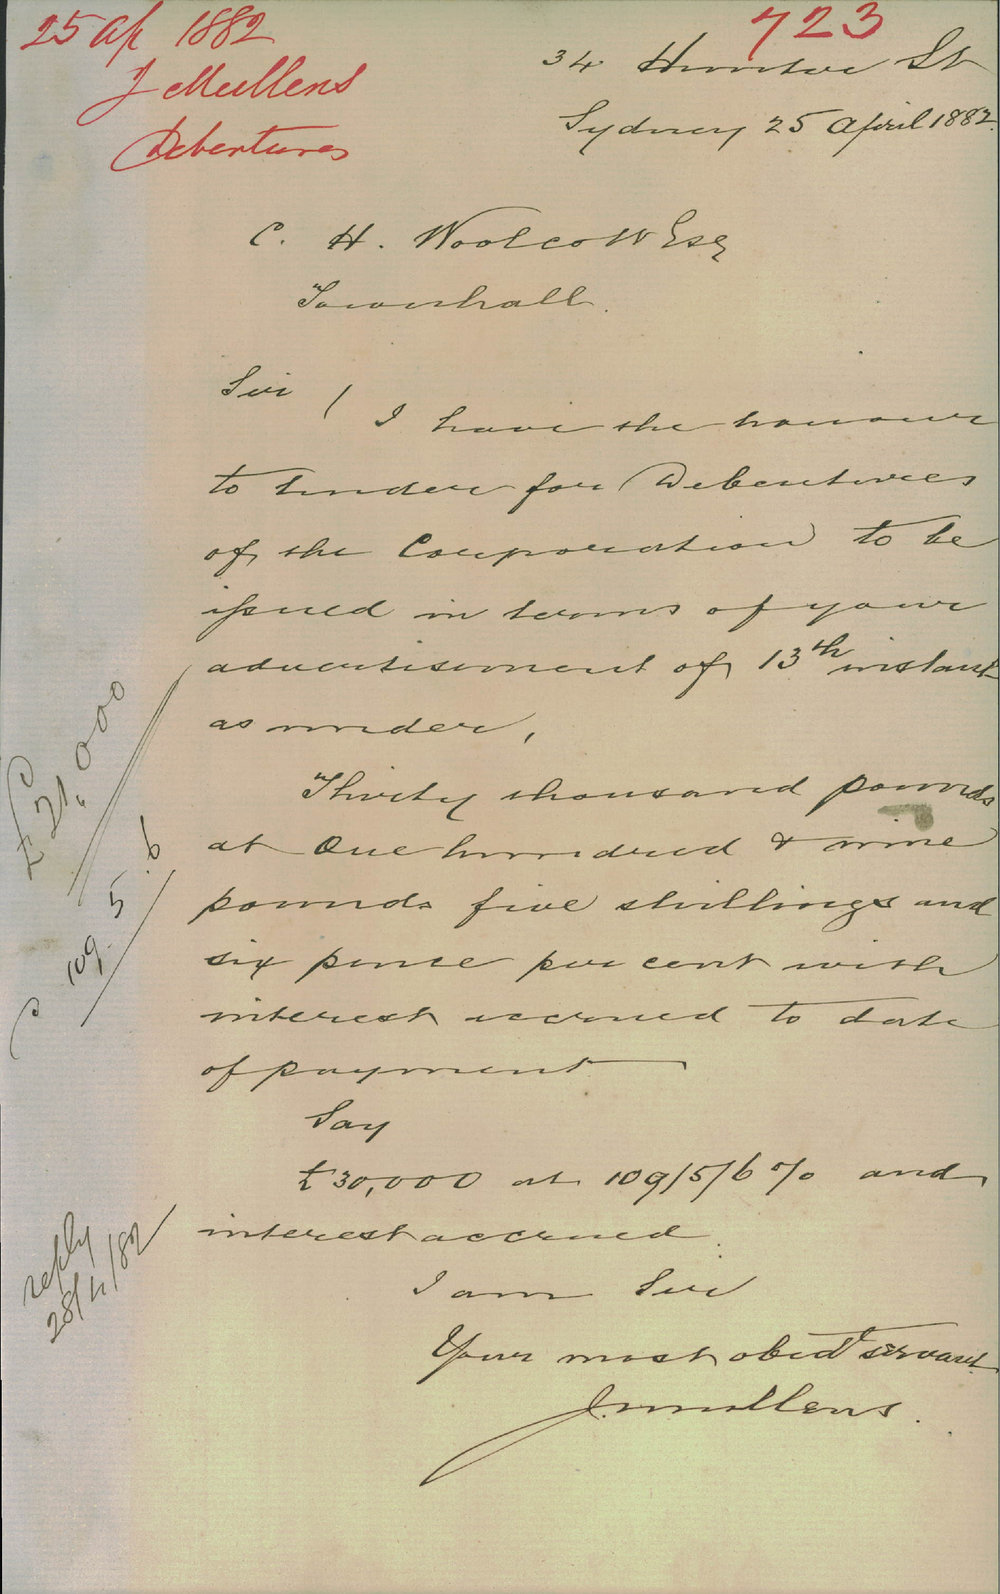 25 Ap 1882
J Mullens
Debentures
723
34 Hunter St
Sydney 25 April 1882.
C. H. Woolcott Esq
Townhall.
Sir /
I have the honour
to tender for Debentures
of the Corporation to be
issued in terms of your
advertisement of 13th instant
as under,
Thirty thousand pounds
at One hundred & nine
pounds five shillings and
six pence per cent with
interest accrued to date
of payment
Say
£30,000 at 109/5/6 % and
interest accrued.
I am Sir
Your most obedt servant
J. Mullens.
£21,000
109. 5. 6
reply
28/4/82